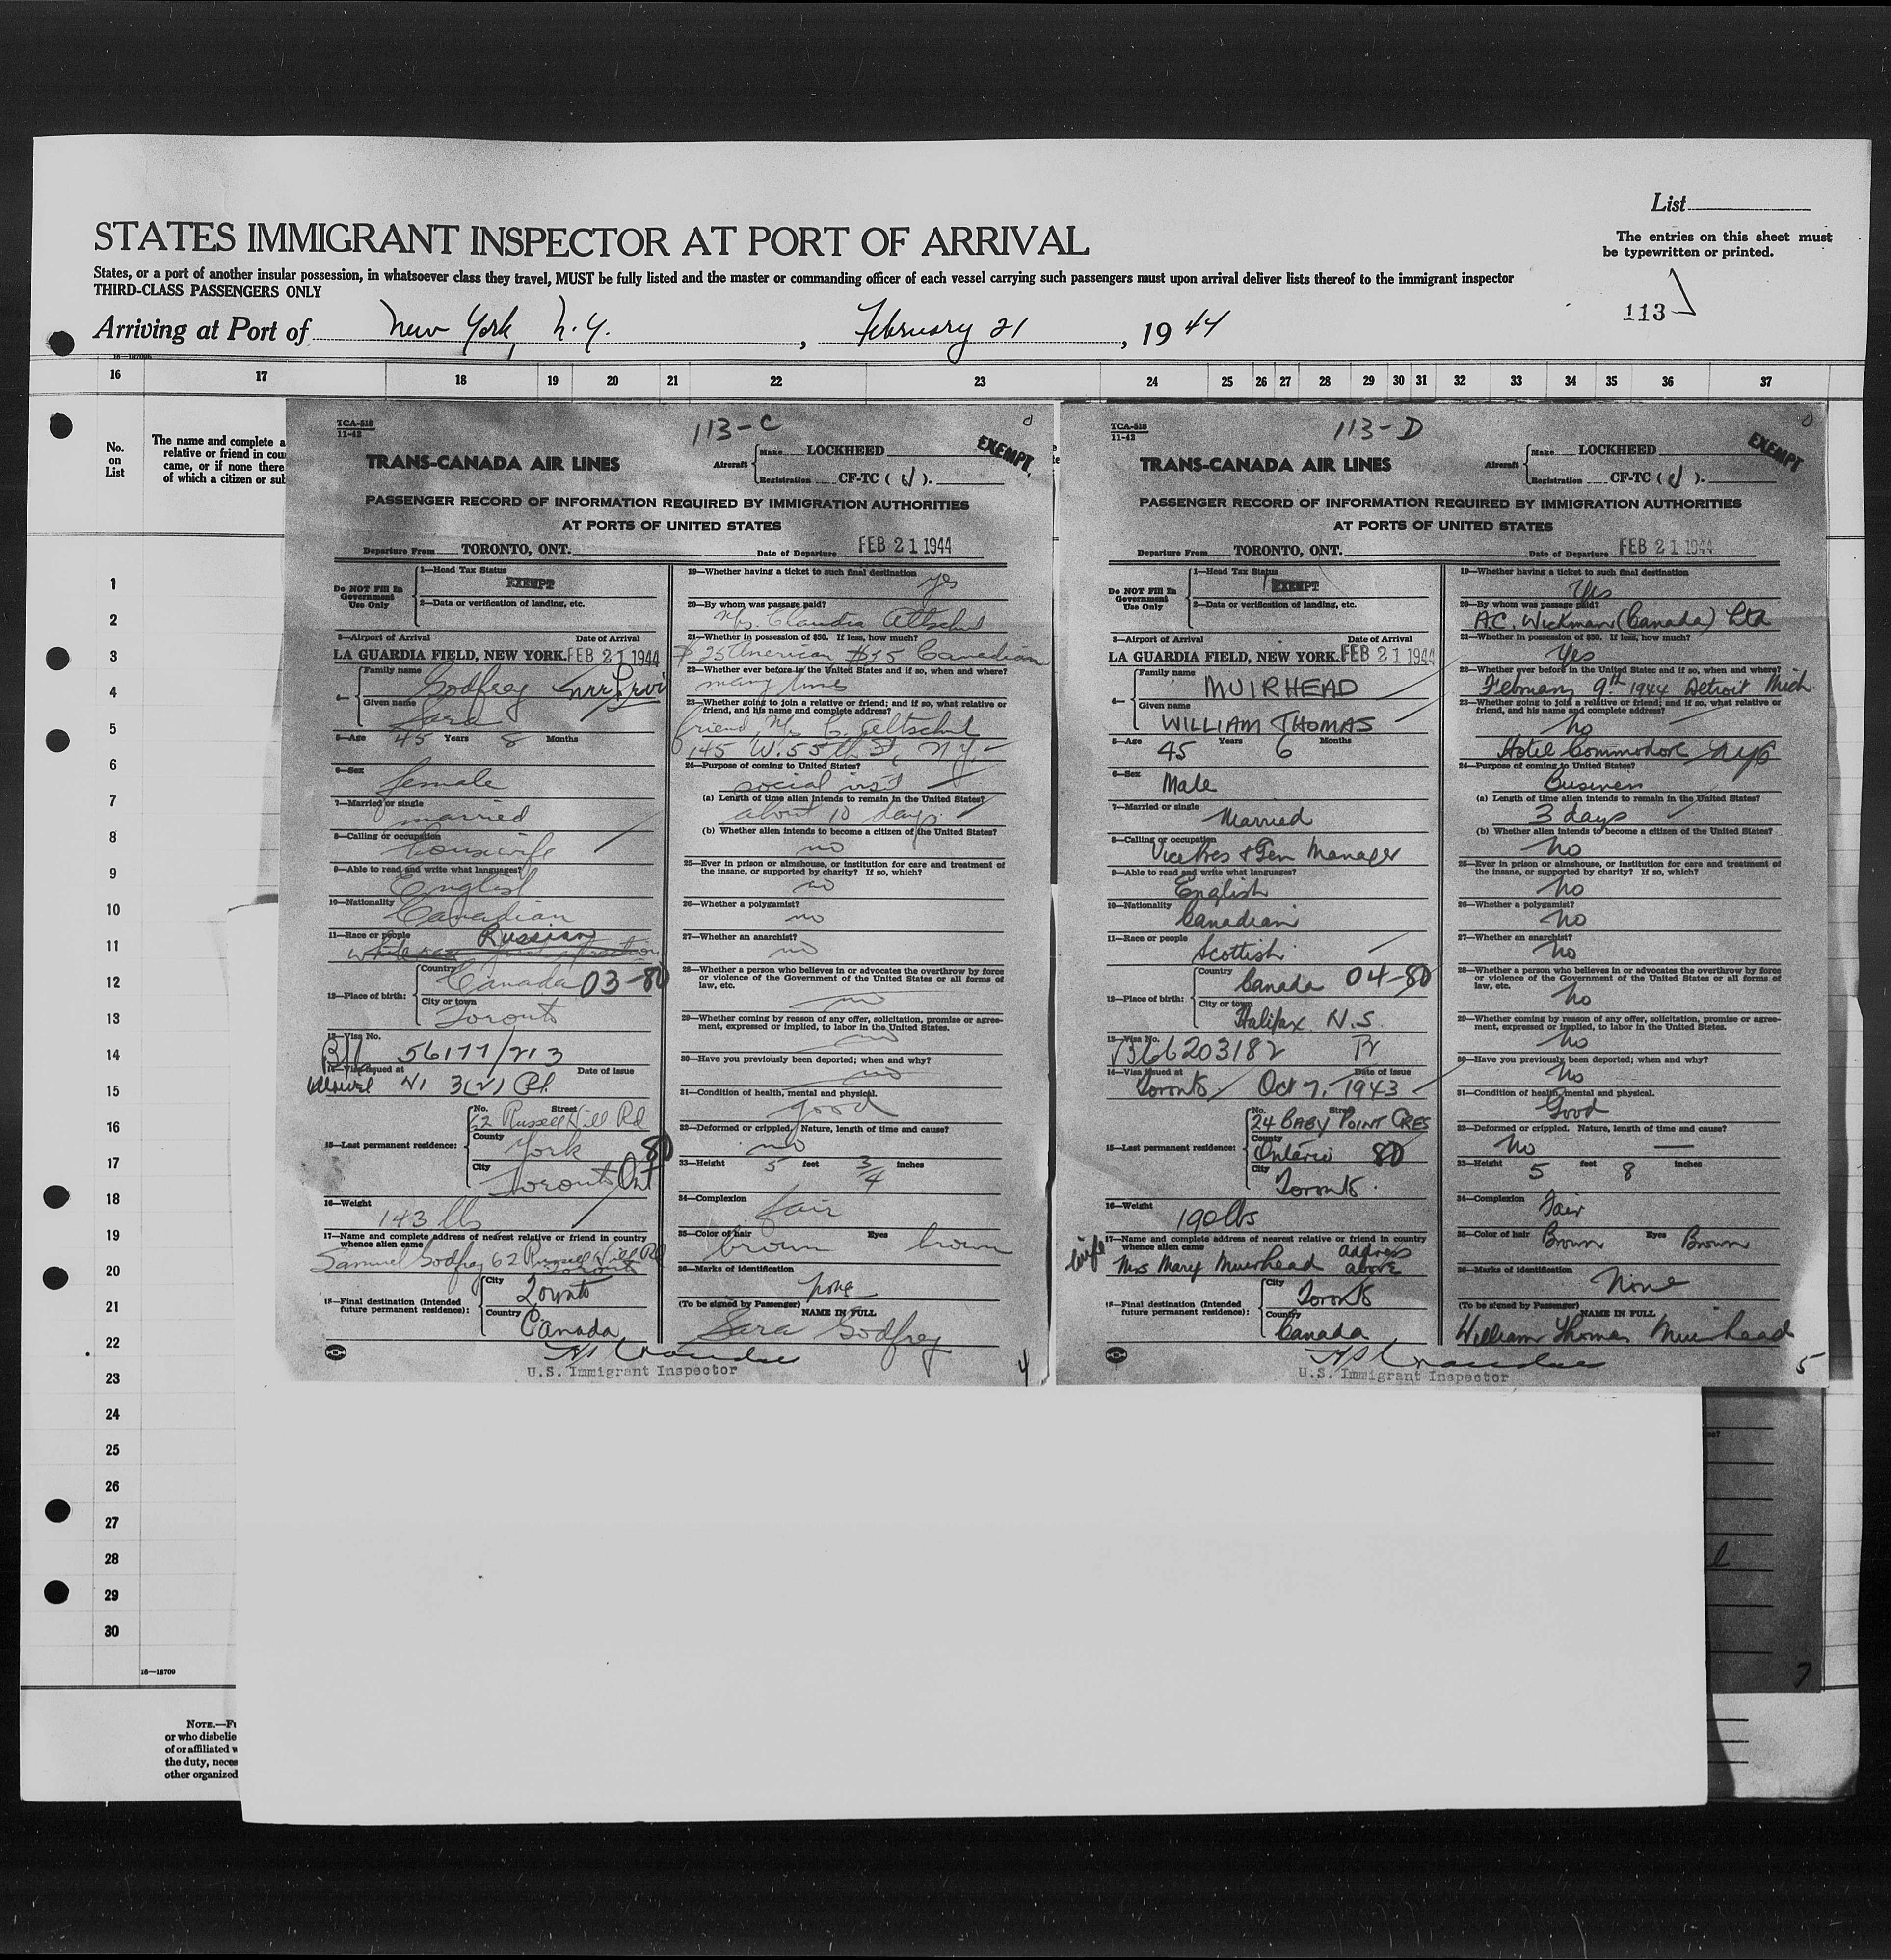 List
STATES IMMIGRANT INSPECTOR AT PORT OF ARRIVAL
The entries on this sheet must
be typewritten or printed.
States, or a port of another insular possession, in whatsoever class they travel, MUST be fully listed and the master or commanding officer of each vessel carrying such passengers must upon arrival deliver lists thereof to the immigrant inspector
THIRD-CLASS PASSENGERS ONLY
113
Arriving at Port of New York, N.Y., February 21, 1944
16 17 18 19 20 21 22 23 24 25 26 27 28 29 30 31 32 33 34 35 36 37
No. on List
The name and complete a
relative or friend in cou
came, or if none there
of which a citizen or sub
1
2
3
4
5
6
7
8
9
10
11
12
13
14
15
16
17
18
19
20
21
22
23
24
25
26
27
28
29
30
16—18700
NOTE.—Fu
or who disbelie
of or affiliated w
the duty, neces
other organized
TCA-518
11-42
113-C
EXEMPT.
TRANS-CANADA AIR LINES
Aircraft Make LOCKHEED
Registration CF-TC ( ).
PASSENGER RECORD OF INFORMATION REQUIRED BY IMMIGRATION AUTHORITIES
AT PORTS OF UNITED STATES
Departure From TORONTO, ONT. Date of Departure FEB 21 1944
Do NOT Fill In Government Use Only
1—Head Tax Status
EXEMPT
2—Data or verification of landing, etc.
3—Airport of Arrival Date of Arrival
LA GUARDIA FIELD, NEW YORK. FEB 21 1944
4— Family name Godfrey
Given name Sara
5—Age 45 Years 8 Months
6—Sex female
7—Married or single married
8—Calling or occupation housewife
9—Able to read and write what languages? English
10—Nationality Canadian
11—Race or people Russian
12—Place of birth: Country Canada 03-80
City or town Toronto
13—Visa No. 56177/213
14—Visa issued at Date of issue
3(2)
15—Last permanent residence: No. Street 62 Russell Hill Rd
County York 80
City Toronto Ont
16—Weight 143 lbs
17—Name and complete address of nearest relative or friend in country
whence alien came
Samuel Godfrey 62 Russell Hill Rd
Toronto
18—Final destination (Intended future permanent residence): City Toronto
Country Canada
19—Whether having a ticket to such final destination yes
20—By whom was passage paid?
Mrs. Claudia Altschul
21—Whether in possession of $50. If less, how much?
$25 American $35 Canadian
22—Whether ever before in the United States and if so, when and where?
many times
23—Whether going to join a relative or friend; and if so, what relative or
friend, and his name and complete address?
friend, Mrs C. Altschul
145 W. 55th St, N.Y.
24—Purpose of coming to United States?
social visit
(a) Length of time alien intends to remain in the United States?
about 10 days
(b) Whether alien intends to become a citizen of the United States?
no
25—Ever in prison or almshouse, or institution for care and treatment of
the insane, or supported by charity? If so, which?
no
26—Whether a polygamist?
no
27—Whether an anarchist?
no
28—Whether a person who believes in or advocates the overthrow by force
or violence of the Government of the United States or all forms of
law, etc.
no
29—Whether coming by reason of any offer, solicitation, promise or agree-
ment, expressed or implied, to labor in the United States.
no
30—Have you previously been deported; when and why?
no
31—Condition of health, mental and physical.
good
32—Deformed or crippled. Nature, length of time and cause?
no
33—Height 5 feet 3/4 inches
34—Complexion fair
35—Color of hair brown Eyes brown
36—Marks of identification none
(To be signed by Passenger) NAME IN FULL
Sara Godfrey
U.S. Immigrant Inspector
4
TCA-518
11-42
113-D
EXEMPT
TRANS-CANADA AIR LINES
Aircraft Make LOCKHEED
Registration CF-TC ( ).
PASSENGER RECORD OF INFORMATION REQUIRED BY IMMIGRATION AUTHORITIES
AT PORTS OF UNITED STATES
Departure From TORONTO, ONT. Date of Departure FEB 21 1944
Do NOT Fill In Government Use Only
1—Head Tax Status
EXEMPT
2—Data or verification of landing, etc.
3—Airport of Arrival Date of Arrival
LA GUARDIA FIELD, NEW YORK. FEB 21 1944
4— Family name MUIRHEAD
Given name WILLIAM THOMAS
5—Age 45 Years 6 Months
6—Sex Male
7—Married or single Married
8—Calling or occupation Vice Pres & Gen Manager
9—Able to read and write what languages? English
10—Nationality Canadian
11—Race or people Scottish
12—Place of birth: Country Canada 04-80
City or town Halifax N.S.
13—Visa No. 203182
14—Visa issued at Date of issue
Toronto Oct 7, 1943
15—Last permanent residence: No. Street 24 BABY POINT CRES
County Ontario 80
City Toronto
16—Weight 190 lbs
17—Name and complete address of nearest relative or friend in country
whence alien came
wife Mrs Mary Muirhead address above
18—Final destination (Intended future permanent residence): City Toronto
Country Canada
19—Whether having a ticket to such final destination
Yes
20—By whom was passage paid?
A.C. Wickman (Canada) Ltd
21—Whether in possession of $50. If less, how much?
Yes
22—Whether ever before in the United States and if so, when and where?
February 9th 1944 Detroit Mich
23—Whether going to join a relative or friend; and if so, what relative or
friend, and his name and complete address?
No
Hotel Commodore NYC
24—Purpose of coming to United States?
Business
(a) Length of time alien intends to remain in the United States?
3 days
(b) Whether alien intends to become a citizen of the United States?
No
25—Ever in prison or almshouse, or institution for care and treatment of
the insane, or supported by charity? If so, which?
No
26—Whether a polygamist?
No
27—Whether an anarchist?
No
28—Whether a person who believes in or advocates the overthrow by force
or violence of the Government of the United States or all forms of
law, etc.
No
29—Whether coming by reason of any offer, solicitation, promise or agree-
ment, expressed or implied, to labor in the United States.
No
30—Have you previously been deported; when and why?
No
31—Condition of health, mental and physical.
Good
32—Deformed or crippled. Nature, length of time and cause?
No
33—Height 5 feet 8 inches
34—Complexion Fair
35—Color of hair Brown Eyes Brown
36—Marks of identification None
(To be signed by Passenger) NAME IN FULL
William Thomas Muirhead
U.S. Immigrant Inspector
5
7